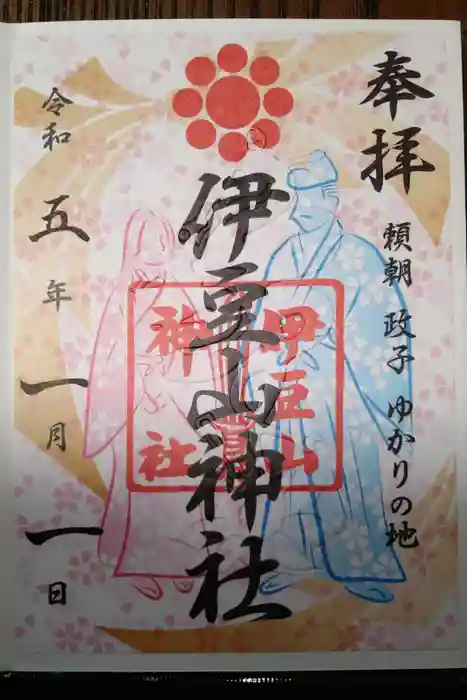 奉拝
頼朝 政子 ゆかりの地
伊豆山神社
令和五年一月一日